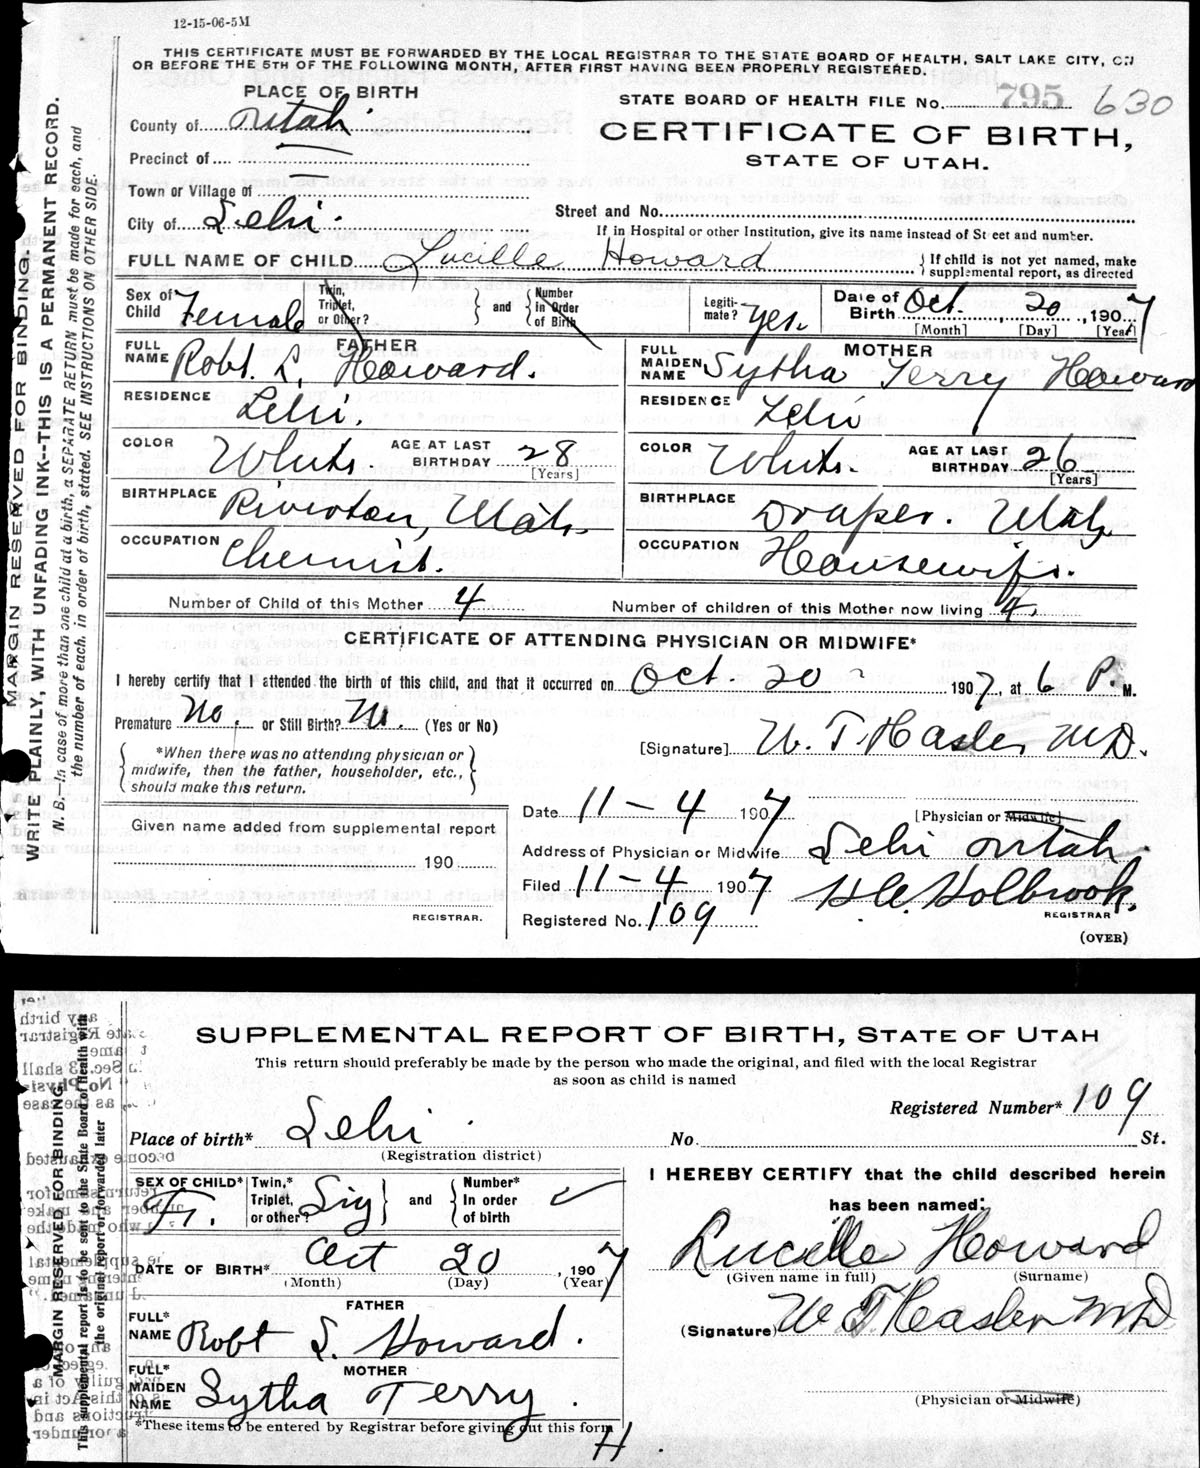 12-15-06-5M
THIS CERTIFICATE MUST BE FORWARDED BY THE LOCAL REGISTRAR TO THE STATE BOARD OF HEALTH, SALT LAKE CITY, ON
OR BEFORE THE 5TH OF THE FOLLOWING MONTH, AFTER FIRST HAVING BEEN PROPERLY REGISTERED.
PLACE OF BIRTH
STATE BOARD OF HEALTH FILE No. 795 630
County of Utah
CERTIFICATE OF BIRTH,
STATE OF UTAH.
Precinct of
Town or Village of
Street and No.
City of Lehi.
If in Hospital or other Institution, give its name instead of Street and number.
FULL NAME OF CHILD Lucille Howard
{ If child is not yet named, make supplemental report, as directed
Sex of Child Female
Twin, Triplet, or Other? } and { Number in Order of Birth
Legitimate? Yes.
Date of Birth Oct. 20, 1907
[Month] [Day] [Year]
FATHER
FULL NAME Robt. L. Howard.
MOTHER
FULL MAIDEN NAME Sytha Terry Howard
RESIDENCE Lehi.
RESIDENCE Lehi
COLOR White. AGE AT LAST BIRTHDAY 28 [Years]
COLOR White. AGE AT LAST BIRTHDAY 26 [Years]
BIRTHPLACE Riverton, Utah.
BIRTHPLACE Draper. Utah
OCCUPATION Chemist.
OCCUPATION Housewife.
Number of Child of this Mother 4
Number of children of this Mother now living 4
CERTIFICATE OF ATTENDING PHYSICIAN OR MIDWIFE*
I hereby certify that I attended the birth of this child, and that it occurred on Oct. 20 1907, at 6 P. M.
Premature No. or Still Birth? No. (Yes or No)
*When there was no attending physician or midwife, then the father, householder, etc., should make this return.
[Signature] W. T. Hasler MD.
[Physician or Midwife]
Given name added from supplemental report
190
REGISTRAR.
Date 11-4 1907
Address of Physician or Midwife Lehi Utah.
Filed 11-4 1907 H. C. Holbrook.
REGISTRAR
Registered No. 109
(OVER)
MARGIN RESERVED FOR BINDING.
WRITE PLAINLY, WITH UNFADING INK--THIS IS A PERMANENT RECORD.
N. B.—In case of more than one child at a birth, a SEPARATE RETURN must be made for each, and
the number of each, in order of birth, stated. SEE INSTRUCTIONS ON OTHER SIDE.
SUPPLEMENTAL REPORT OF BIRTH, STATE OF UTAH
This return should preferably be made by the person who made the original, and filed with the local Registrar
as soon as child is named
Registered Number* 109
Place of birth* Lehi. No. St.
(Registration district)
SEX OF CHILD* F.
Twin,* Triplet, or other? Sig } and { Number* In order of birth
DATE OF BIRTH* Oct 20, 1907
(Month) (Day) (Year)
FATHER
FULL* NAME Robt L. Howard.
MOTHER
FULL* MAIDEN NAME Sytha Terry.
*These items to be entered by Registrar before giving out this form
H
I HEREBY CERTIFY that the child described herein
has been named:
Lucille Howard
(Given name in full) (Surname)
(Signature) W T Hasler MD
(Physician or Midwife)
MARGIN RESERVED FOR BINDING
This supplemental report is to be sent to the State Board of Health with
the original report or forwarded later